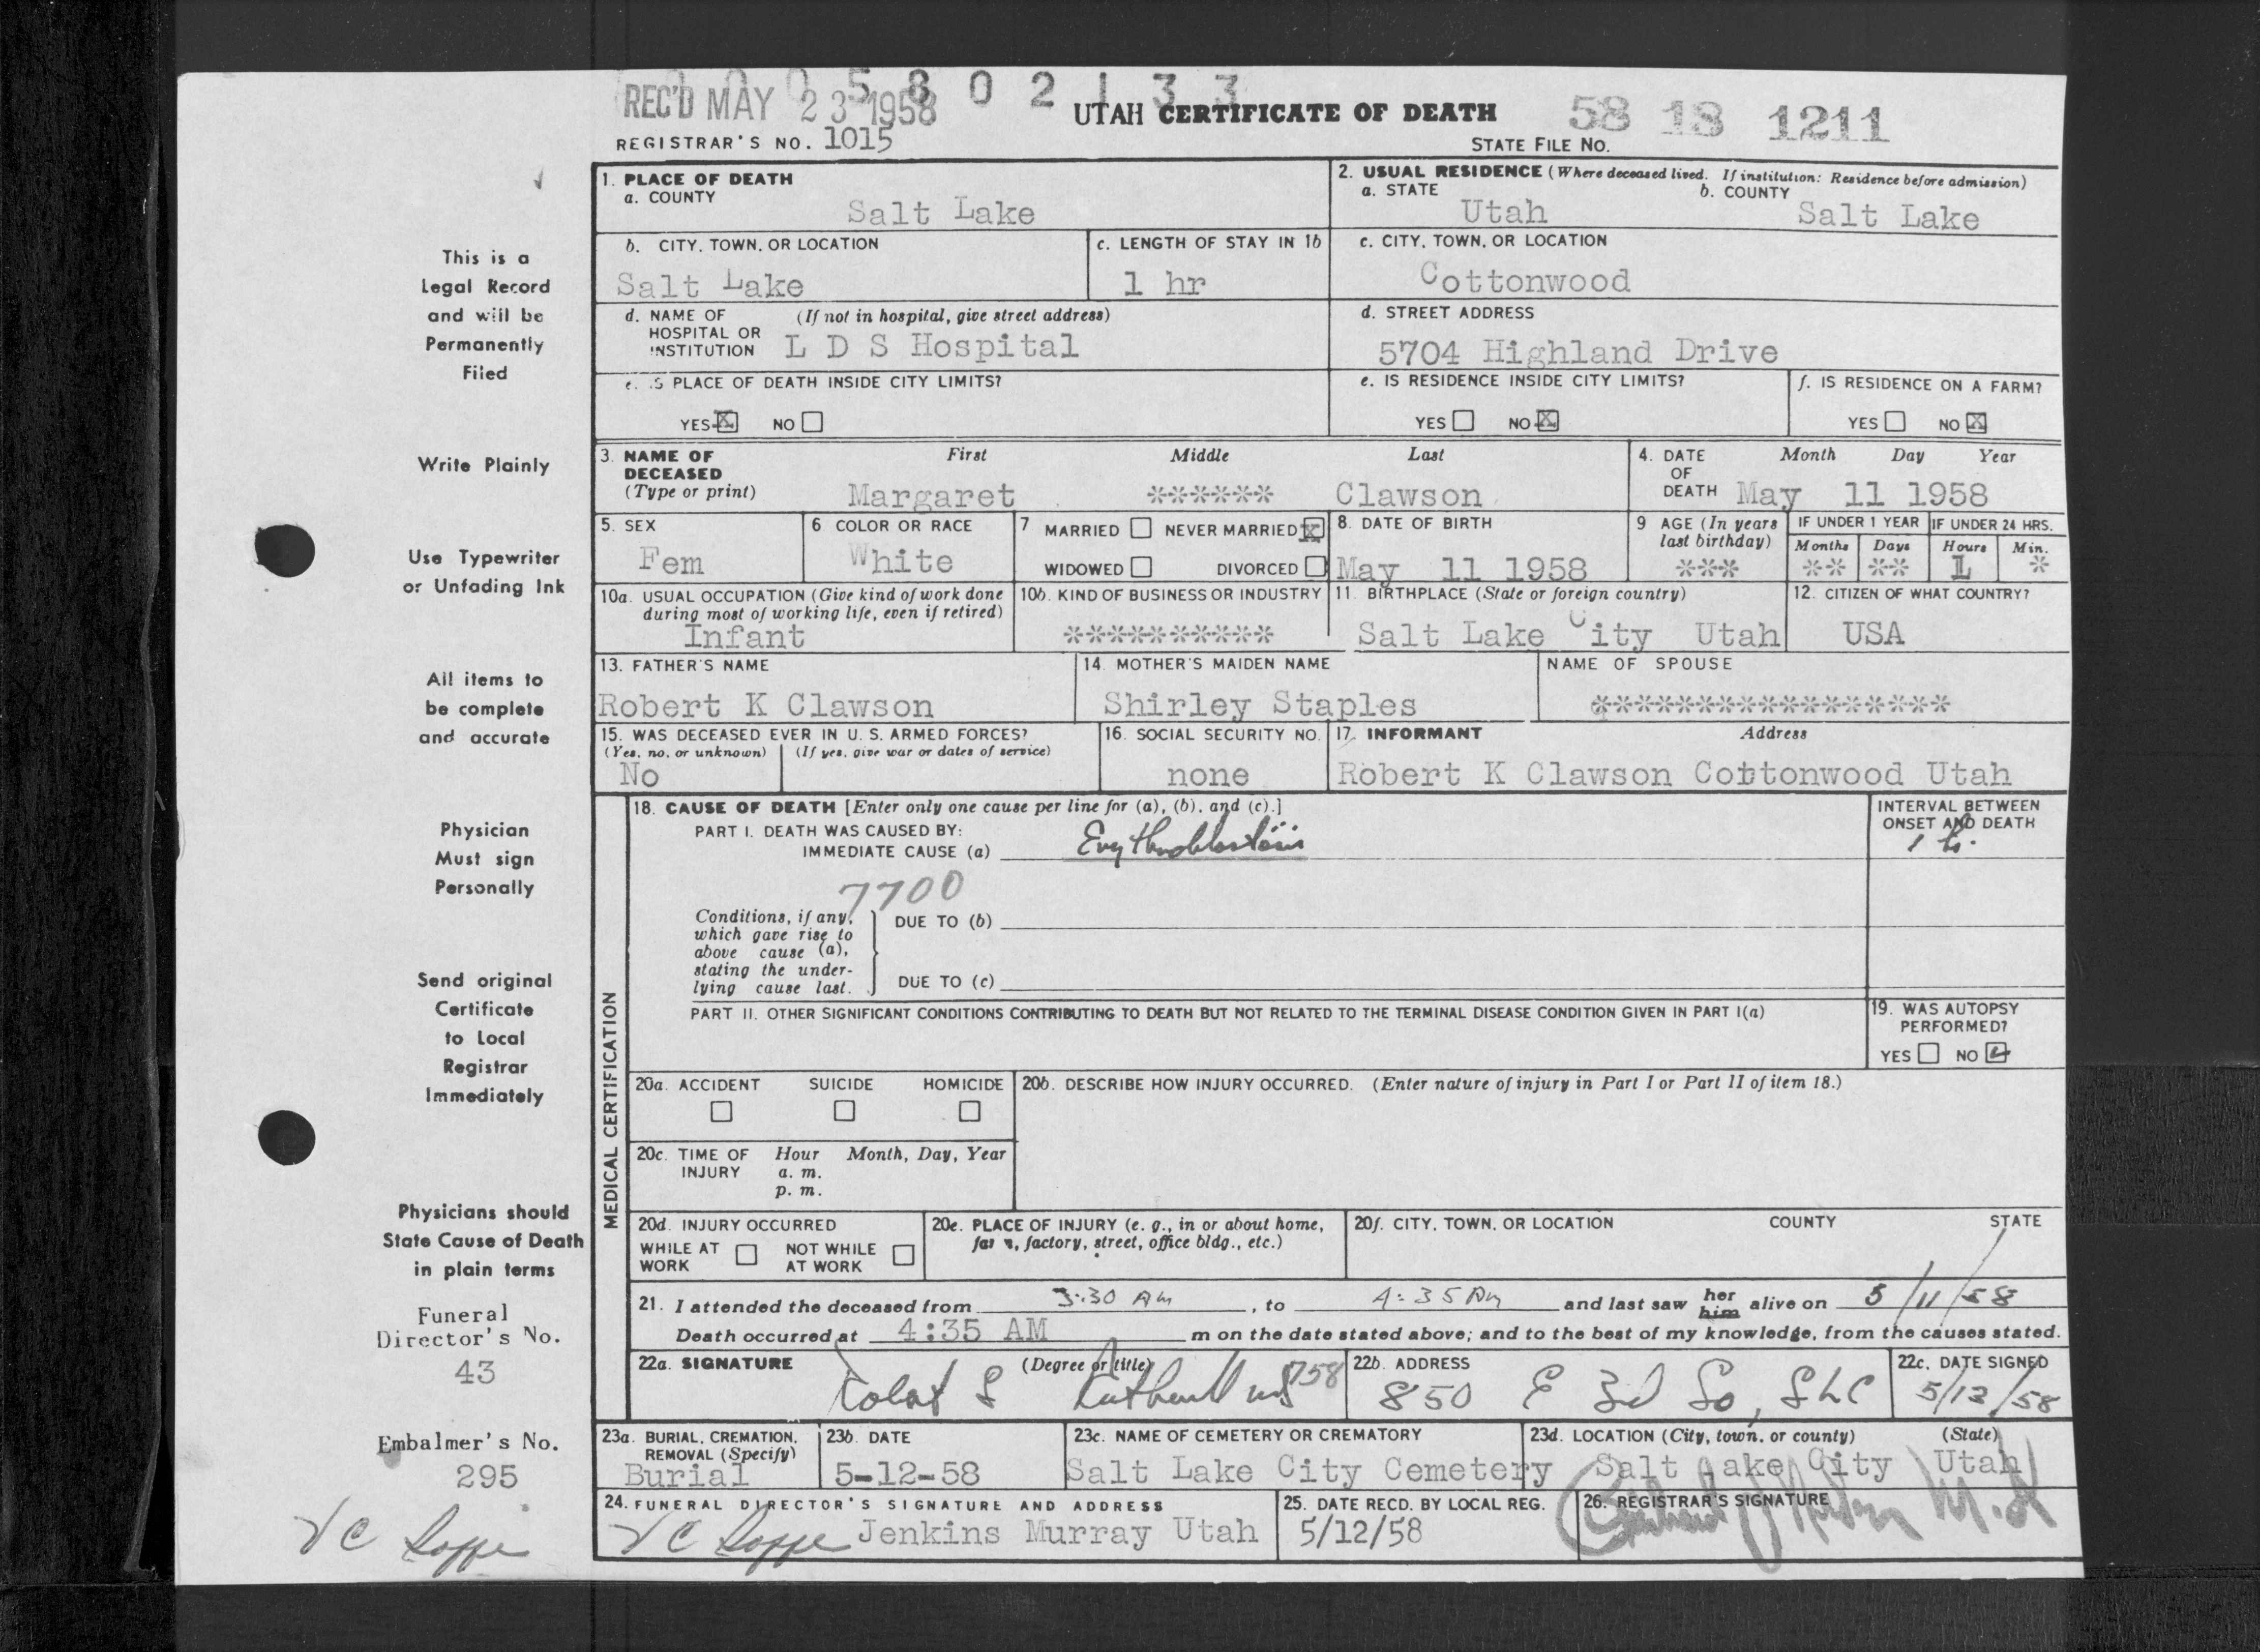 0 0 0 5 8 0 2 1 3 3
REC'D MAY 23 1958
UTAH CERTIFICATE OF DEATH
58 18 1211
REGISTRAR'S NO. 1015
STATE FILE NO.
This is a
Legal Record
and will be
Permanently
Filed
Write Plainly
Use Typewriter
or Unfading Ink
All items to
be complete
and accurate
Physician
Must sign
Personally
Send original
Certificate
to Local
Registrar
Immediately
Physicians should
State Cause of Death
in plain terms
Funeral
Director's No.
43
Embalmer's No.
295
1. PLACE OF DEATH
a. COUNTY
Salt Lake
2. USUAL RESIDENCE (Where deceased lived. If institution: Residence before admission)
a. STATE b. COUNTY
Utah Salt Lake
b. CITY, TOWN, OR LOCATION
Salt Lake
c. LENGTH OF STAY IN 1b
1 hr
c. CITY, TOWN, OR LOCATION
Cottonwood
d. NAME OF (If not in hospital, give street address)
HOSPITAL OR
INSTITUTION L D S Hospital
d. STREET ADDRESS
5704 Highland Drive
e. IS PLACE OF DEATH INSIDE CITY LIMITS?
YES X NO
e. IS RESIDENCE INSIDE CITY LIMITS?
YES NO X
f. IS RESIDENCE ON A FARM?
YES NO X
3. NAME OF First Middle Last
DECEASED
(Type or print) Margaret ****** Clawson
4. DATE Month Day Year
OF
DEATH May 11 1958
5. SEX
Fem
6 COLOR OR RACE
White
7 MARRIED NEVER MARRIED X
WIDOWED DIVORCED
8. DATE OF BIRTH
May 11 1958
9 AGE (In years
last birthday)
***
IF UNDER 1 YEAR IF UNDER 24 HRS.
Months Days Hours Min.
** ** 1 *
10a. USUAL OCCUPATION (Give kind of work done
during most of working life, even if retired)
Infant
10b. KIND OF BUSINESS OR INDUSTRY
**********
11. BIRTHPLACE (State or foreign country)
Salt Lake City Utah
12. CITIZEN OF WHAT COUNTRY?
USA
13. FATHER'S NAME
Robert K Clawson
14. MOTHER'S MAIDEN NAME
Shirley Staples
NAME OF SPOUSE
*****************
15. WAS DECEASED EVER IN U. S. ARMED FORCES?
(Yes, no, or unknown) (If yes, give war or dates of service)
No
16. SOCIAL SECURITY NO.
none
17. INFORMANT Address
Robert K Clawson Cottonwood Utah
MEDICAL CERTIFICATION
18. CAUSE OF DEATH [Enter only one cause per line for (a), (b), and (c).]
PART I. DEATH WAS CAUSED BY:
IMMEDIATE CAUSE (a) Erythroblastosis
INTERVAL BETWEEN
ONSET AND DEATH
1 hr.
7700
Conditions, if any,
which gave rise to
above cause (a),
stating the under-
lying cause last.
DUE TO (b)
DUE TO (c)
PART II. OTHER SIGNIFICANT CONDITIONS CONTRIBUTING TO DEATH BUT NOT RELATED TO THE TERMINAL DISEASE CONDITION GIVEN IN PART I(a)
19. WAS AUTOPSY
PERFORMED?
YES NO
20a. ACCIDENT SUICIDE HOMICIDE
20b. DESCRIBE HOW INJURY OCCURRED. (Enter nature of injury in Part I or Part II of item 18.)
20c. TIME OF Hour Month, Day, Year
INJURY a. m.
p. m.
20d. INJURY OCCURRED
WHILE AT NOT WHILE
WORK AT WORK
20e. PLACE OF INJURY (e. g., in or about home,
farm, factory, street, office bldg., etc.)
20f. CITY, TOWN, OR LOCATION COUNTY STATE
21. I attended the deceased from 3:30 AM, to 4:35 AM and last saw her him alive on 5/11/58
Death occurred at 4:35 AM m on the date stated above; and to the best of my knowledge, from the causes stated.
22a. SIGNATURE (Degree or title)
758
22b. ADDRESS
850 E 3d So, SLC
22c. DATE SIGNED
5/13/58
23a. BURIAL, CREMATION,
REMOVAL (Specify)
Burial
23b. DATE
5-12-58
23c. NAME OF CEMETERY OR CREMATORY
Salt Lake City Cemetery
23d. LOCATION (City, town, or county) (State)
Salt Lake City Utah
24. FUNERAL DIRECTOR'S SIGNATURE AND ADDRESS
Jenkins Murray Utah
25. DATE RECD. BY LOCAL REG.
5/12/58
26. REGISTRAR'S SIGNATURE